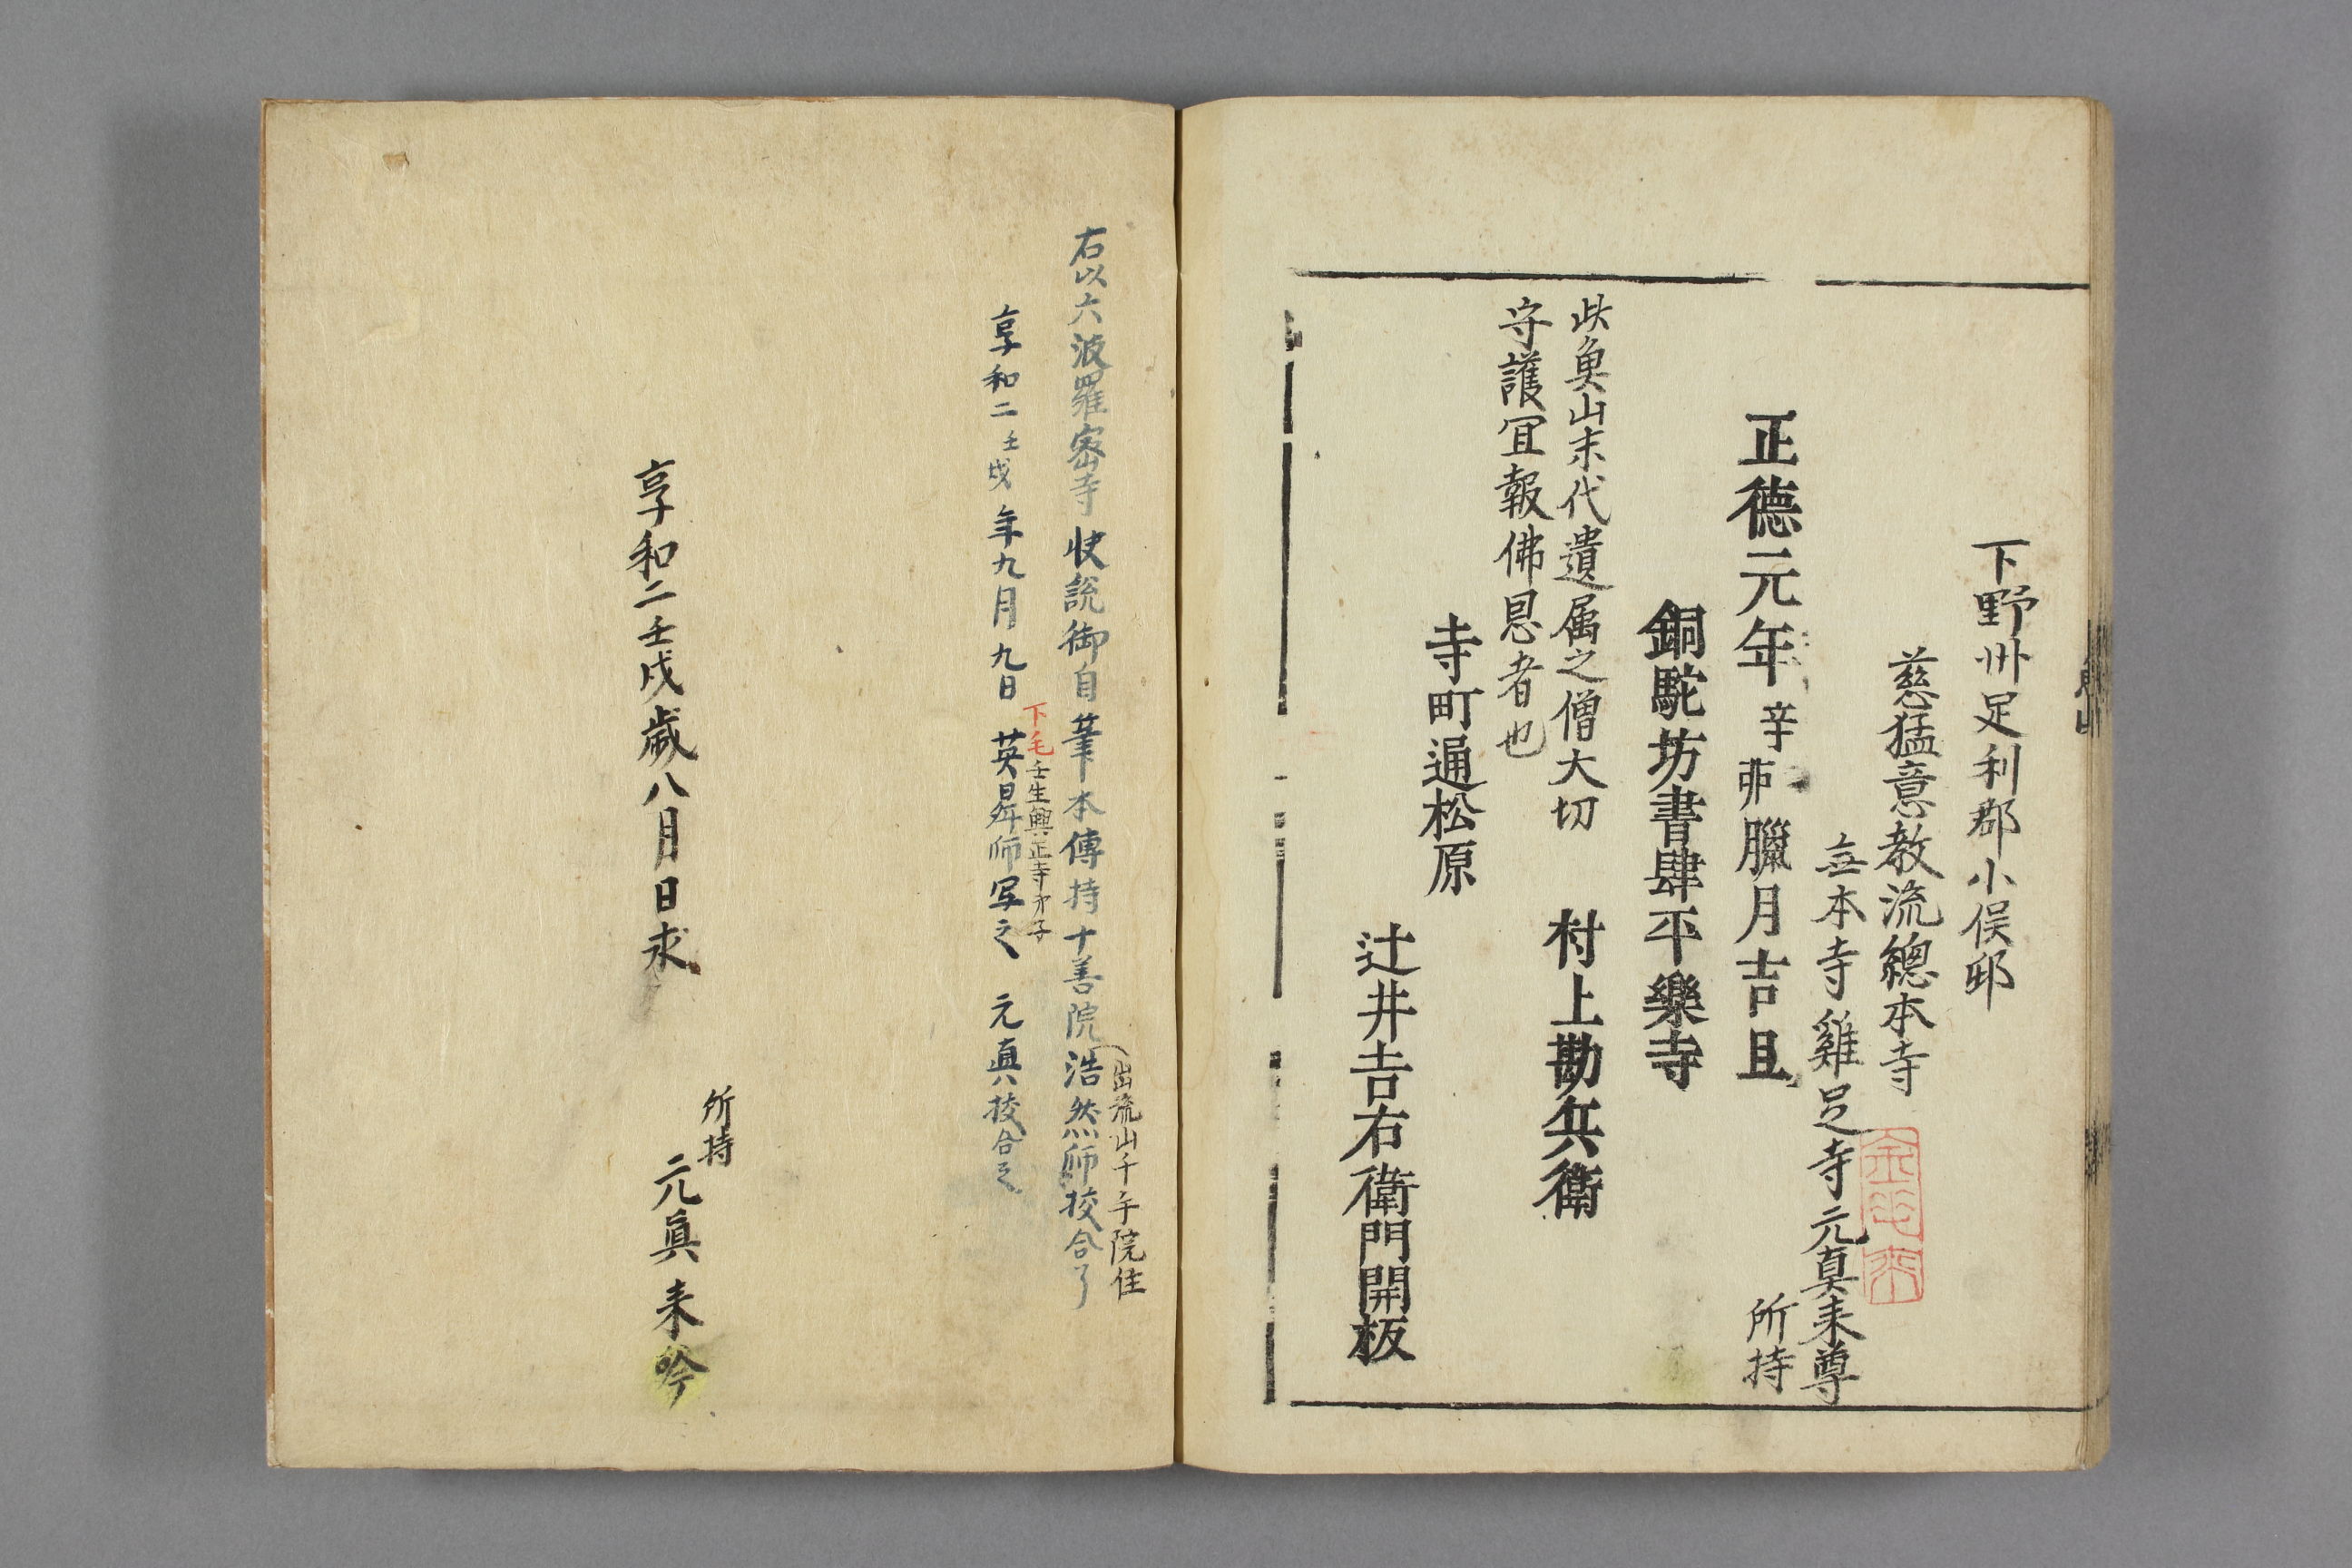 下野州足利郡小俣邨
慈猛意教流總本寺
無本寺雞足寺元真耒尊
所持
正德元年辛卯臘月吉旦
銅駝坊書肆平樂寺
村上勘兵衛
此魚山末代遺属之僧大切
守護冝報佛恩者也
寺町通松原
辻井吉右衛門開板
出流山千手院住
右以六波羅密寺快説御自筆本傳持十善院浩然師挍合了
下毛壬生興正寺弟子
享和二壬戌年九月九日英昇師写之 元真挍合之
享和二壬戌歳八月日求
所持
元真耒吟